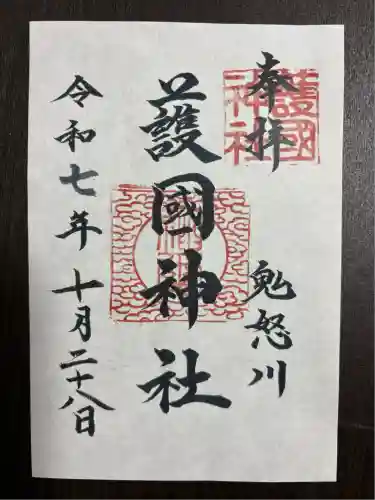 奉拝
護國神社
鬼怒川
護國神社
令和七年十月二十八日